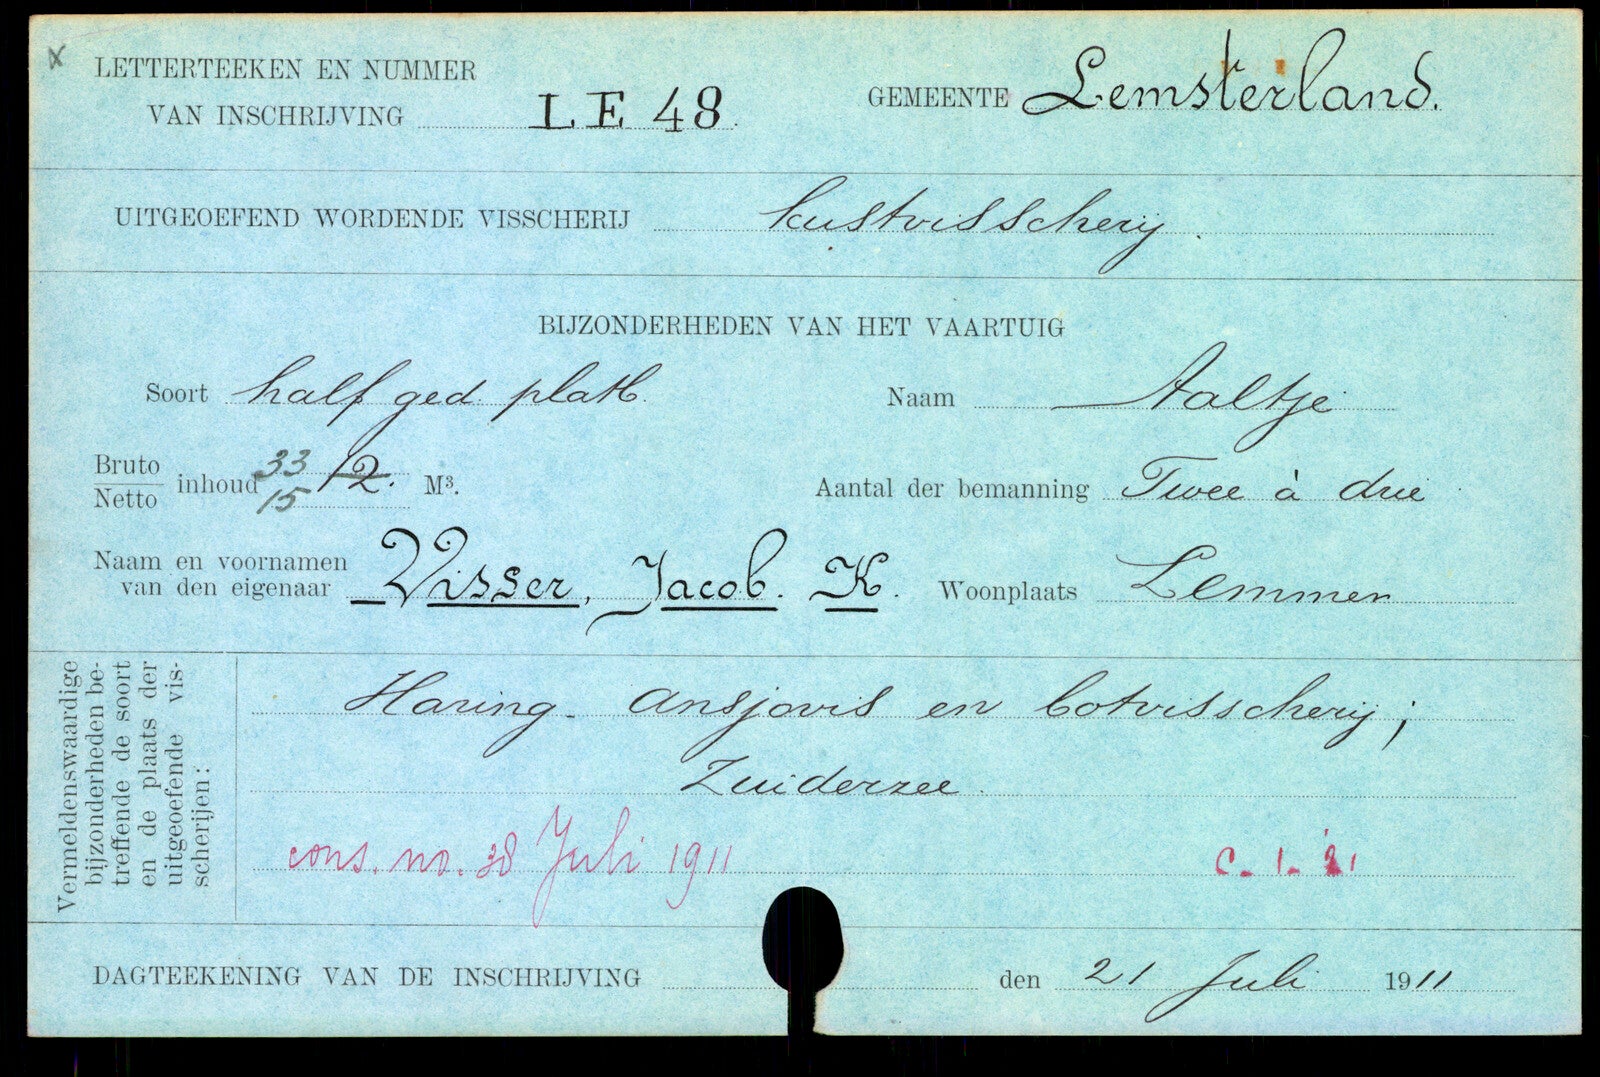 x
LETTERTEEKEN EN NUMMER
VAN INSCHRIJVING LE 48
GEMEENTE Lemsterland.
UITGEOEFEND WORDENDE VISSCHERIJ kustvisscherij.
BIJZONDERHEDEN VAN HET VAARTUIG
Soort half ged. platb.
Naam Aaltje
Bruto 33
Netto 15
inhoud 12. M³.
Aantal der bemanning Twee à drie
Naam en voornamen
van den eigenaar Visser, Jacob. K.
Woonplaats Lemmer
Vermeldenswaardige
bijzonderheden be-
treffende de soort
en de plaats der
uitgeoefende vis-
scherijen:
Haring- Ansjovis en botvisscherij;
Zuiderzee.
cons. no. 38 Juli 1911
C. 1. 21
DAGTEEKENING VAN DE INSCHRIJVING
den 21 Juli 1911